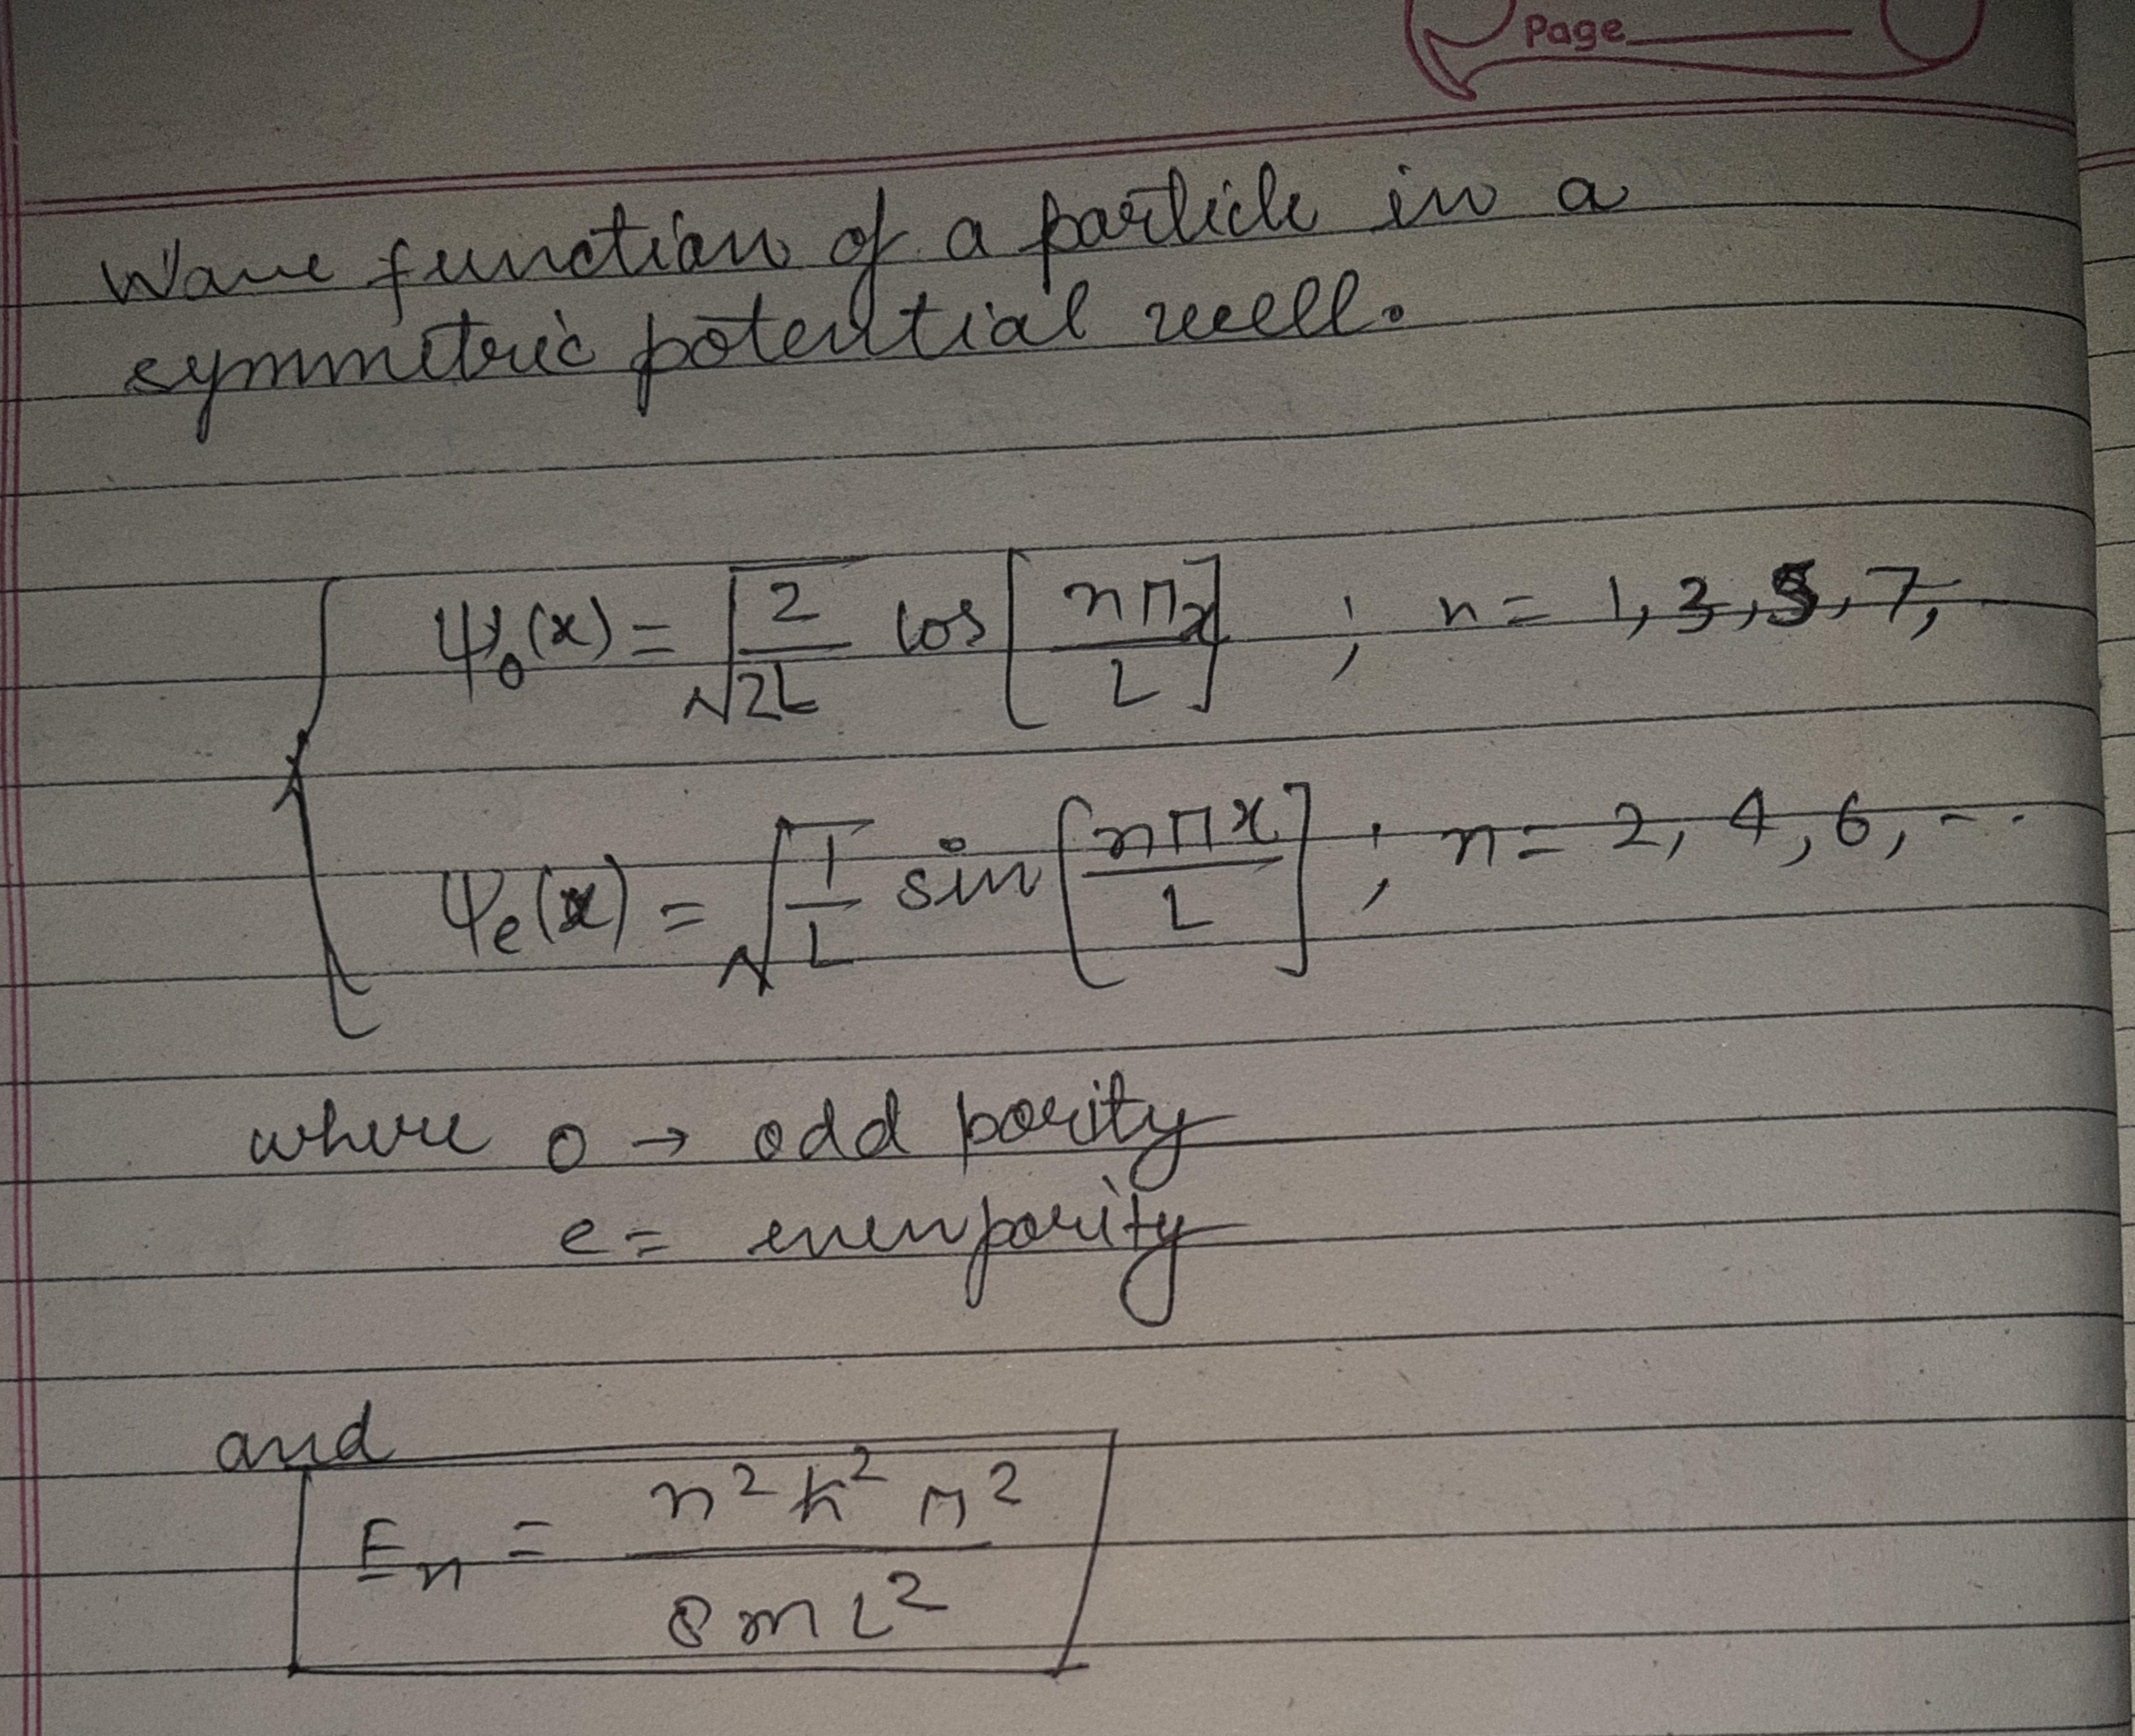 Page
Wave function of a particle in a
symmetric potential well.
ψₒ(x) = √(2/2L) cos[nπx/L] ; n = 1, 3, 5, 7,
ψₑ(x) = √(1/L) sin[nπx/L] ; n = 2, 4, 6, - -
where o → odd parity
e = even parity
and
Eₙ = n²ħ²π²/8mL²